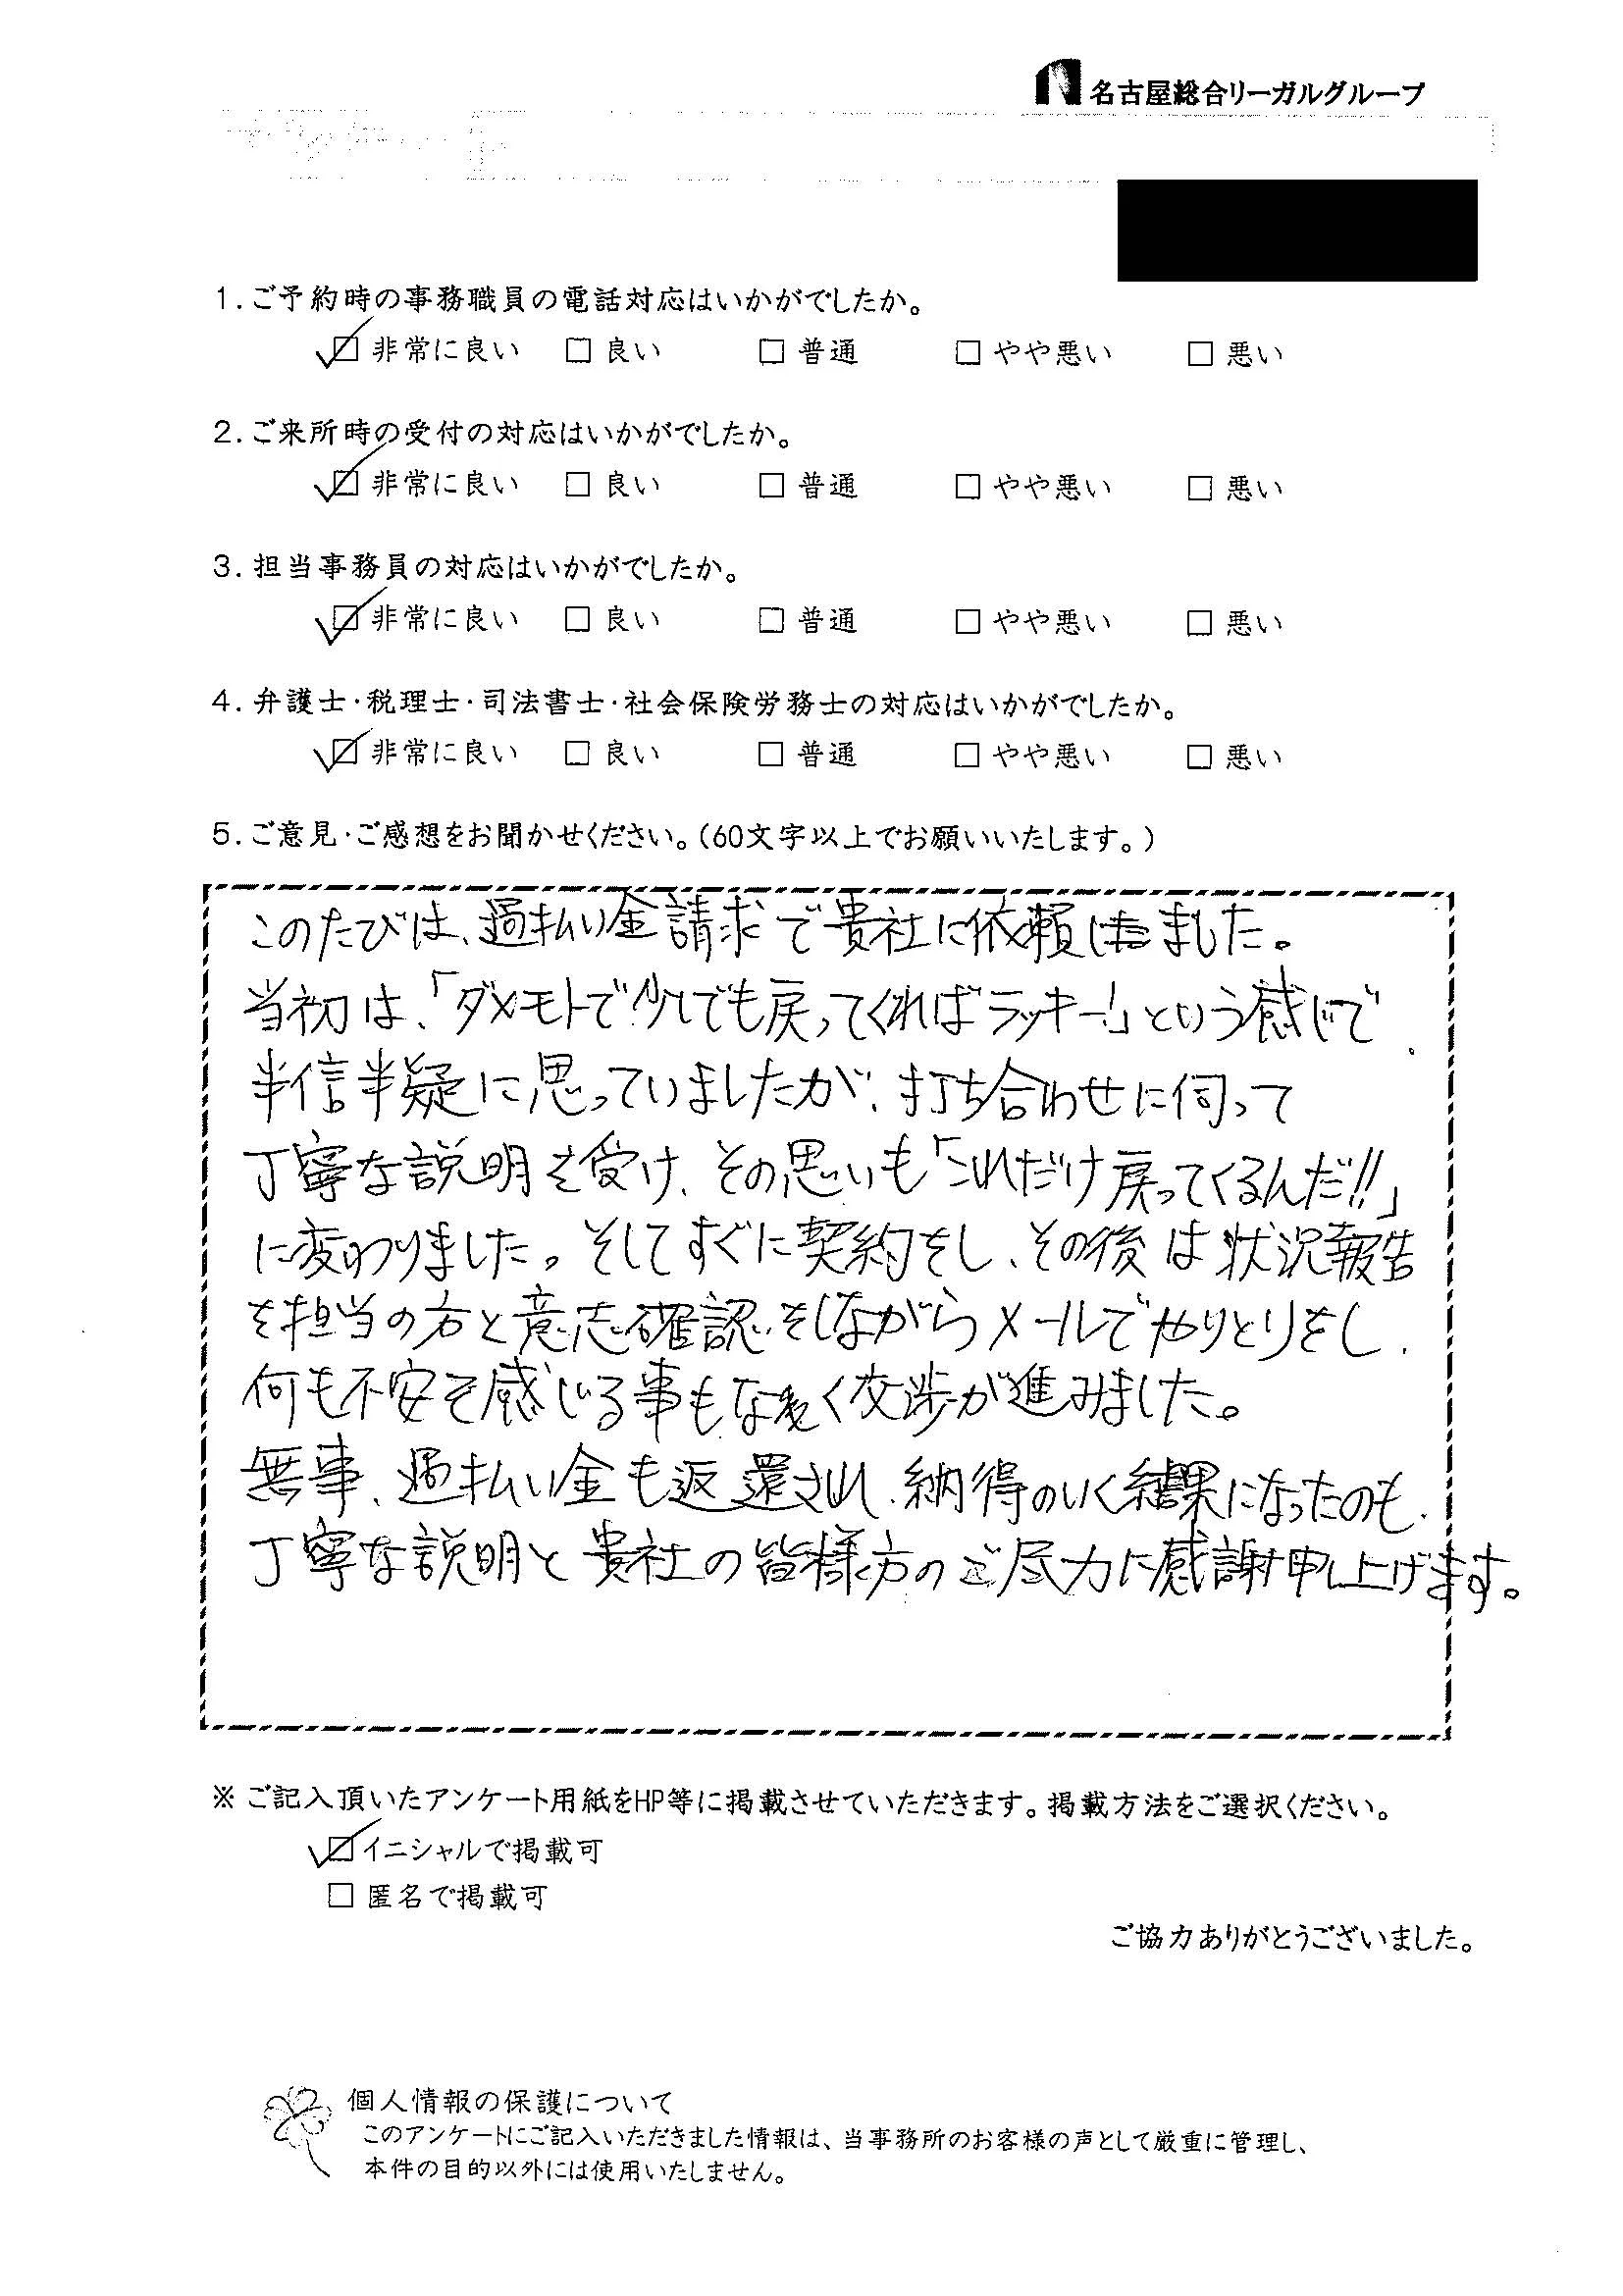 名古屋総合リーガルグループ
1.ご予約時の事務職員の電話対応はいかがでしたか。
☑ 非常に良い □ 良い □ 普通 □ やや悪い □ 悪い
2.ご来所時の受付の対応はいかがでしたか。
☑ 非常に良い □ 良い □ 普通 □ やや悪い □ 悪い
3.担当事務員の対応はいかがでしたか。
☑ 非常に良い □ 良い □ 普通 □ やや悪い □ 悪い
4.弁護士・税理士・司法書士・社会保険労務士の対応はいかがでしたか。
☑ 非常に良い □ 良い □ 普通 □ やや悪い □ 悪い
5.ご意見・ご感想をお聞かせください。(60文字以上でお願いいたします。)
このたびは、過払い金請求で貴社に依頼しました。
当初は、「ダメモトで少しでも戻ってくればラッキー!」という感じで、
半信半疑に思っていましたが、打ち合わせに伺って
丁寧な説明を受け、その思いも「これだけ戻ってくるんだ!!」
に変わりました。そしてすぐに契約をし、その後は状況報告
を担当の方と意志確認をしながらメールでやりとりをし、
何も不安を感じる事もなく交渉が進みました。
無事、過払い金も返還され、納得のいく結果になったのも、
丁寧な説明と貴社の皆様方のご尽力に感謝申し上げます。
※ご記入頂いたアンケート用紙をHP等に掲載させていただきます。掲載方法をご選択ください。
☑ イニシャルで掲載可
□ 匿名で掲載可
ご協力ありがとうございました。
個人情報の保護について
このアンケートにご記入いただきました情報は、当事務所のお客様の声として厳重に管理し、
本件の目的以外には使用いたしません。